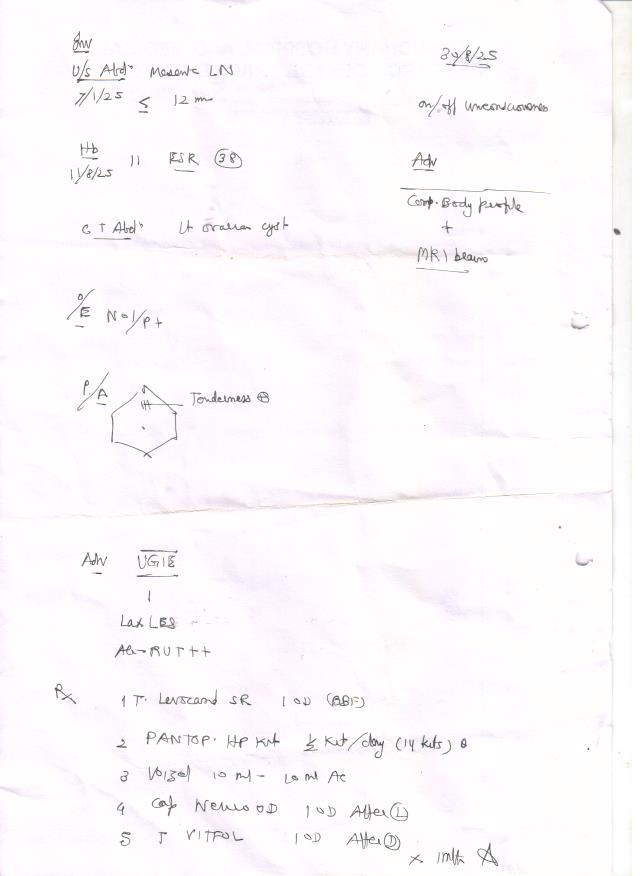 Inv
U/S Abdn Mesentc LN
7/1/25 ≤ 12 mm
Hb 11 ESR 38
11/8/25
CT Abdn Lt ovarian cyst
O/E
P/A Tenderness ⊕
30/8/25
on/off unconsciousness
Adv
Comp. Body
+
MRI brain
Adv UGIE
Lax LES
RUT++
Rx
1 T. SR 1 OD (BBF)
2 PANTOP. HP Kit ½ Kit/day (14 Kits)
3 10 ml - 10 ml Ac
4 Cap OD 1 OD After L
5 T VITFOL 1 OD After D